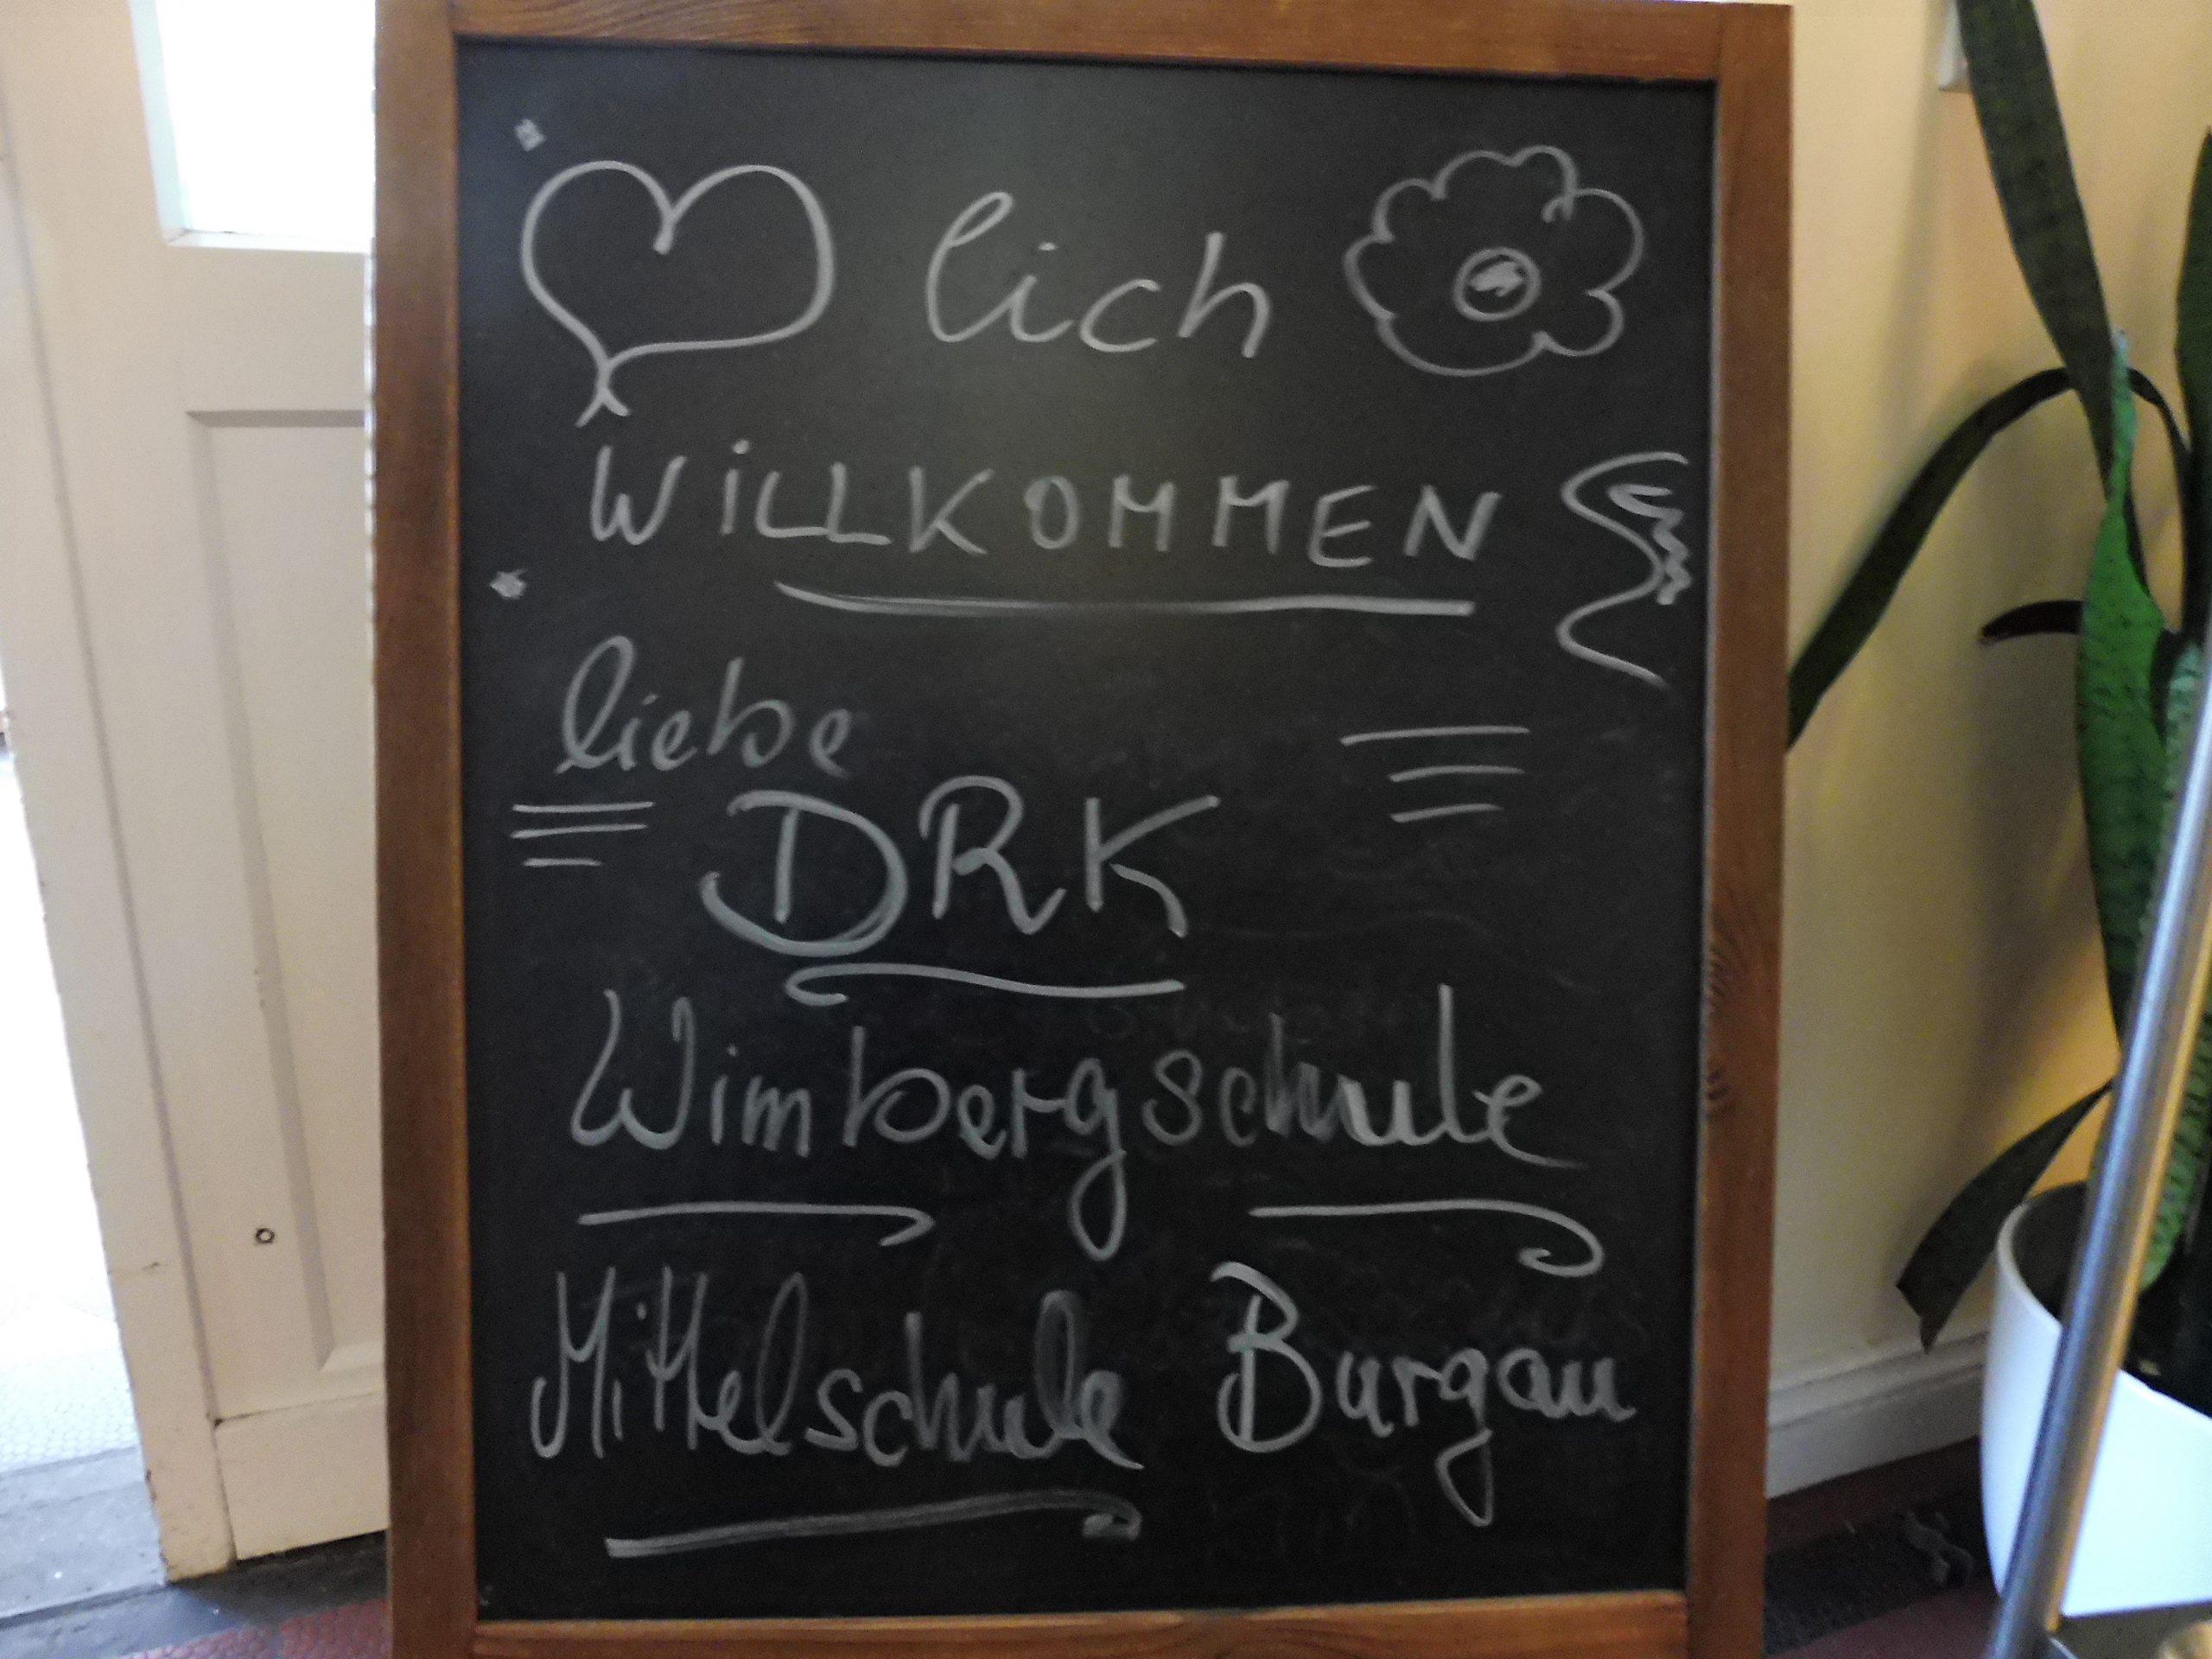 lich
WiLLKOMMEN
liebe
DRK
Wimbergschule
Mittelschule Burgau